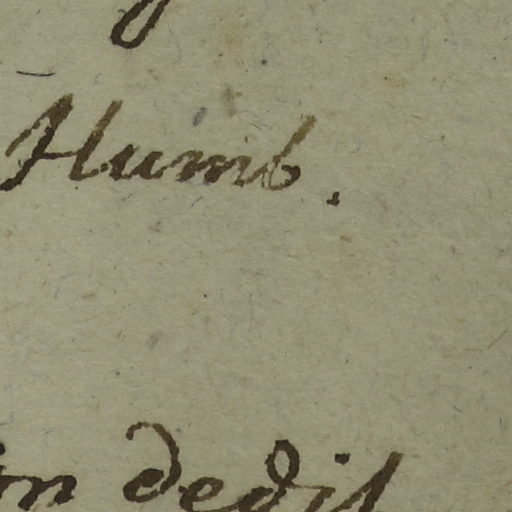 Humb.
dedit